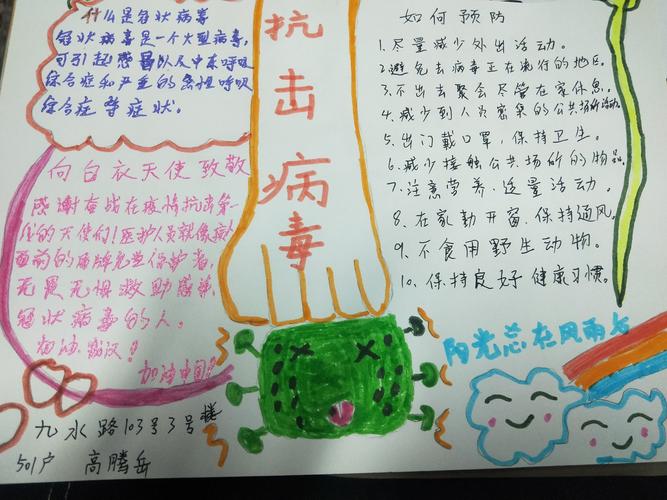 什么是冠状病毒
冠状病毒是一个大型病毒,
可引起感冒以及中东呼吸
综合征和严重的急性呼吸
综合症等症状。
向白衣天使致敬
感谢奋战在疫情抗击第一
线的天使们!医护人员就像病人
面前的盾牌免费保护者,
无畏无惧救助感染
冠状病毒的人。
加油武汉!
加油中国!
抗击病毒
如何预防
1.尽量减少外出活动。
2.避免去病毒正在流行的地区。
3.不出去聚会尽管在家休息。
4.减少到人员密集的公共场所活动。
5.出门戴口罩,保持卫生。
6.减少接触公共场所的物品。
7.注意营养、适量活动。
8.在家勤开窗、保持通风。
9.不食用野生动物。
10.保持良好健康习惯。
阳光总在风雨后
九水路103号3号楼
501户 高腾岳